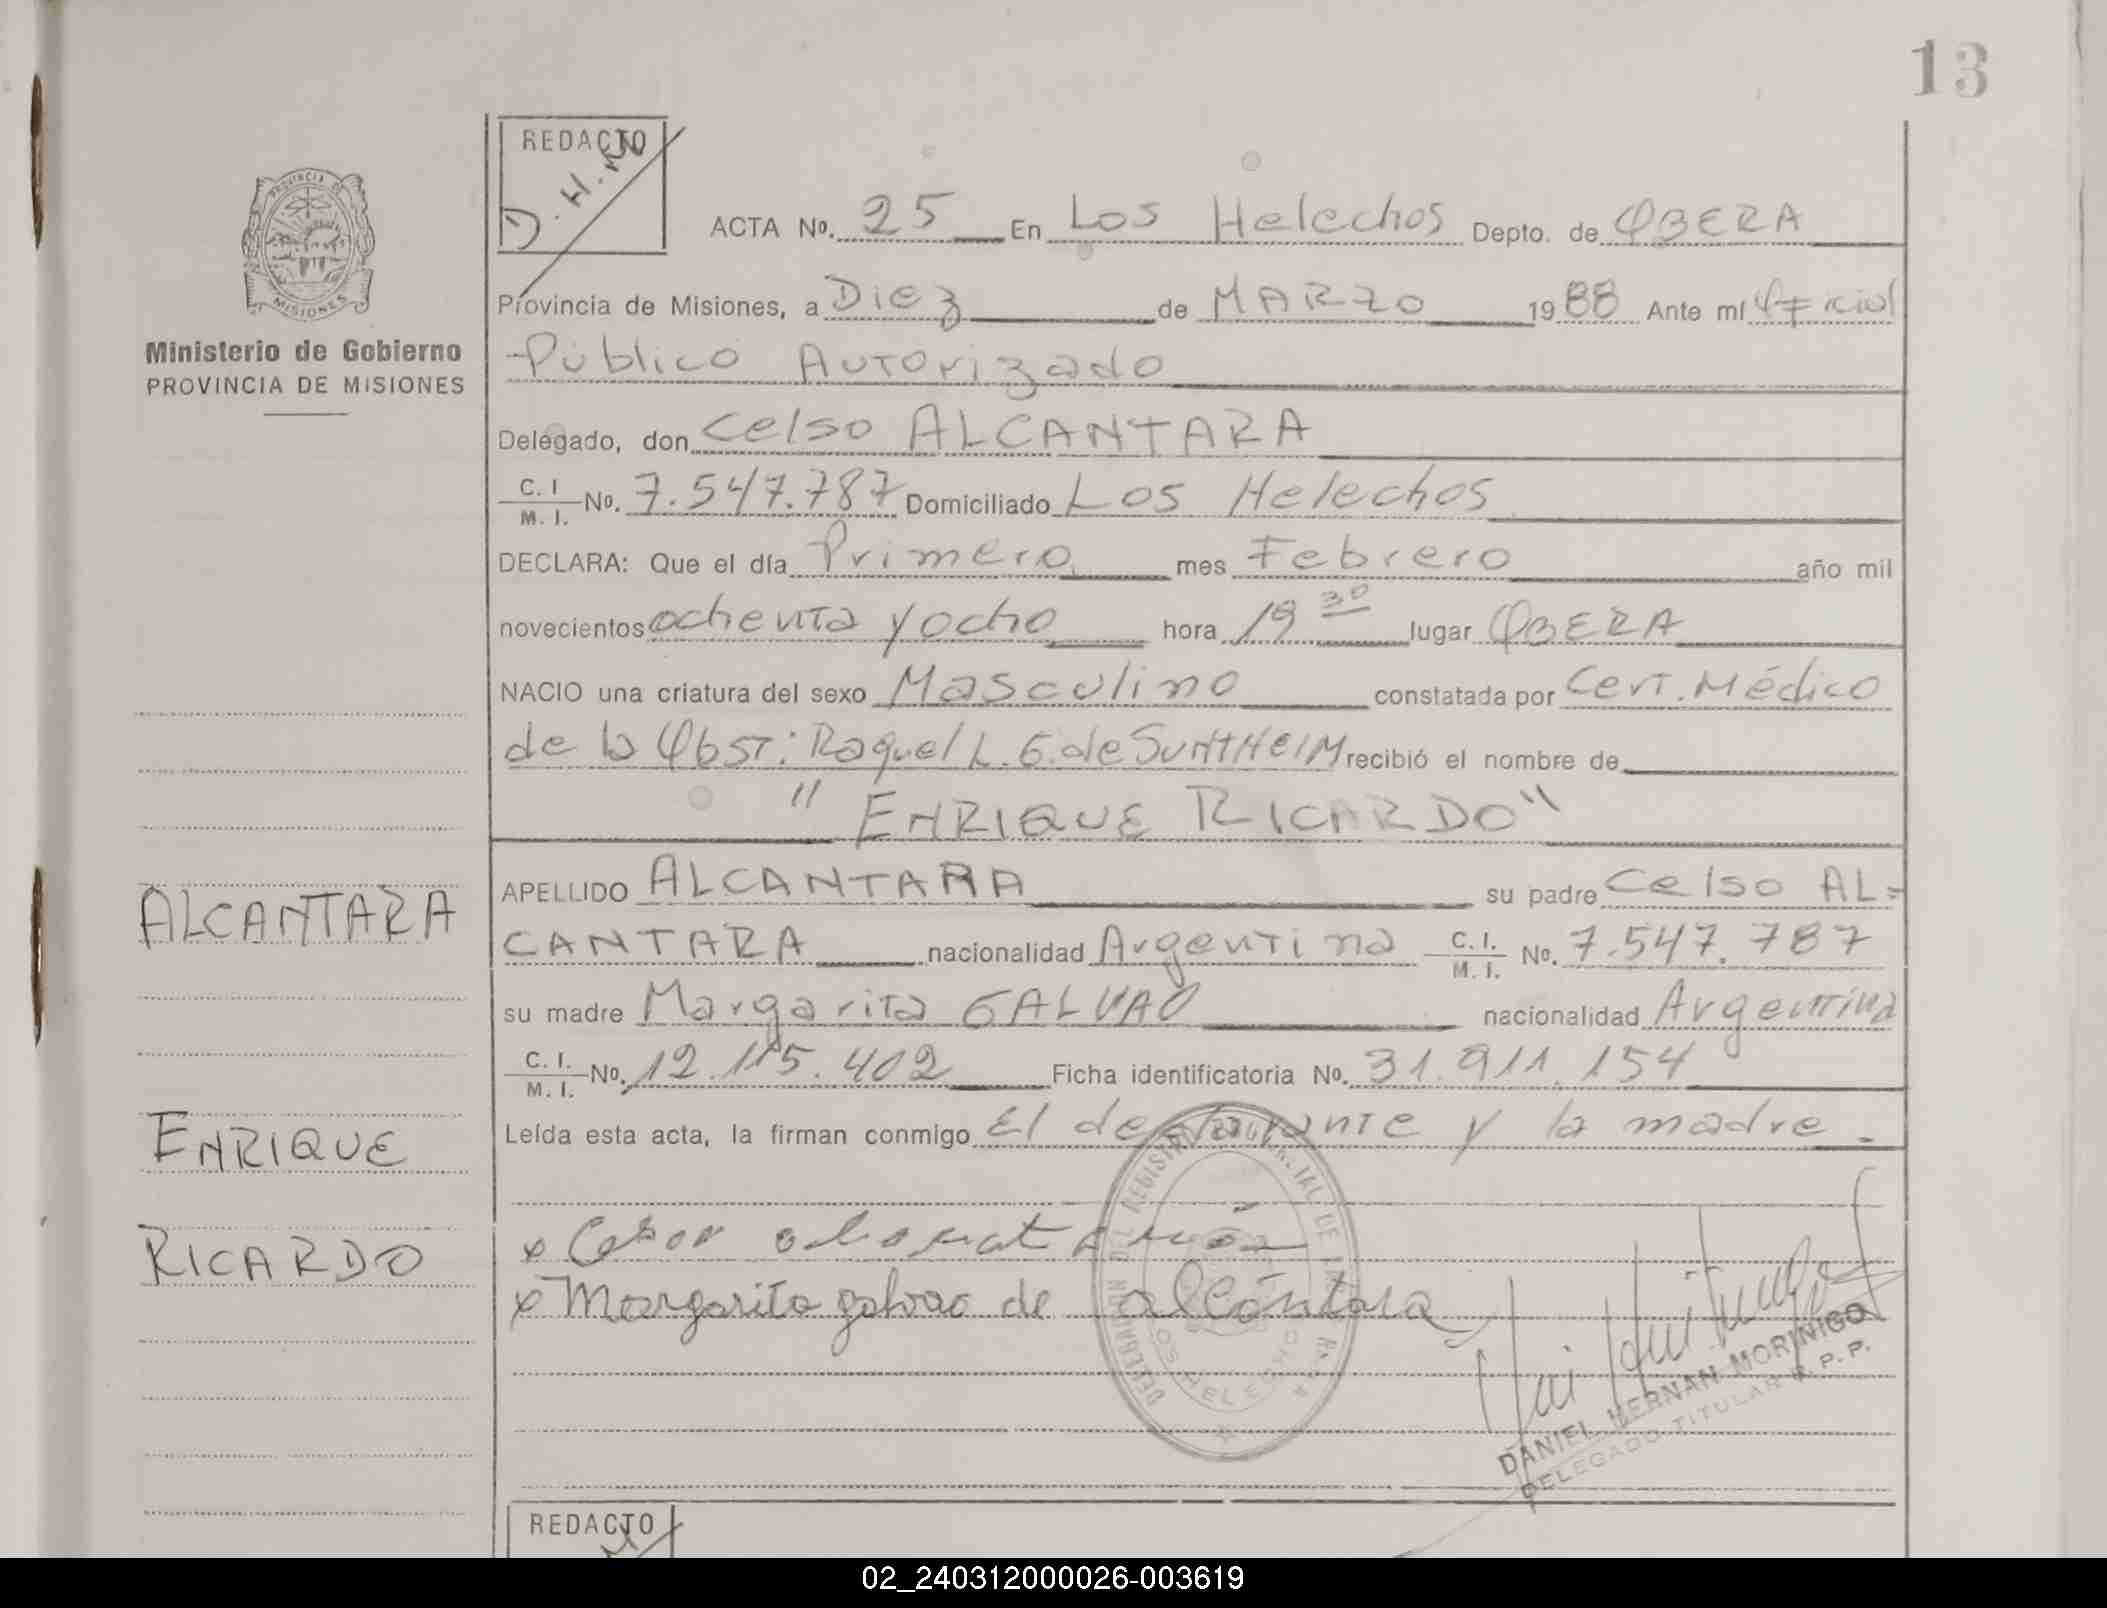 13
REDACTO
D.H.M
PROVINCIA DE
MISIONES
Ministerio de Gobierno
PROVINCIA DE MISIONES
ACTA No. 25 En Los Helechos Depto. de OBERA
Provincia de Misiones, a Diez de MARZO 1988 Ante mí Oficial
Público Autorizado
Delegado, don Celso ALCANTARA
C. I. / M. I. No. 7.547.787 Domiciliado Los Helechos
DECLARA: Que el día Primero mes Febrero año mil
novecientos ochenta y ocho hora 19 30 lugar OBERA
NACIO una criatura del sexo Masculino constatada por Cert. Médico
de la Obst: Raquel L. G. de SUNTHEIM recibió el nombre de
"ENRIQUE RICARDO"
APELLIDO ALCANTARA su padre Celso AL=
CANTARA nacionalidad Argentina C. I. / M. I. No. 7.547.787
su madre Margarita GALVAO nacionalidad Argentina
C. I. / M. I. No. 12.115.402 Ficha identificatoria No. 31.911.154
Leída esta acta, la firman conmigo El declarante y la madre.
ALCANTARA
ENRIQUE
RICARDO
x Margarita galvao de alcántara
DANIEL HERNAN MORINIGO
DELEGADO TITULAR R. P. P.
REDACTO
02_240312000026-003619